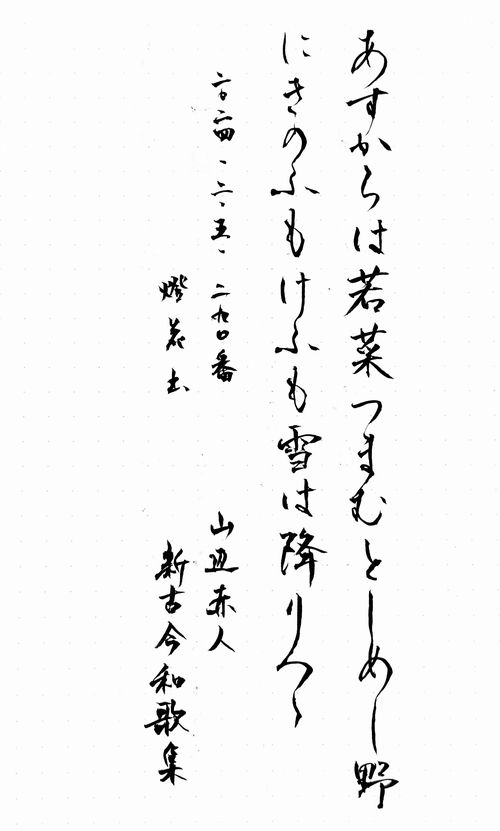 あすからは若菜つまむとしめし野
にきのふもけふも雪は降りつゝ
二〇二四、二、五、二九〇番
山辺赤人
新古今和歌集